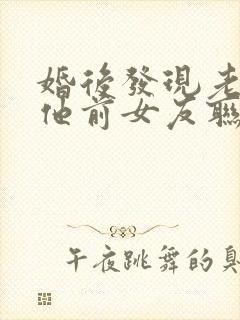 婚後發現老
他前女友聯
午夜跳舞的